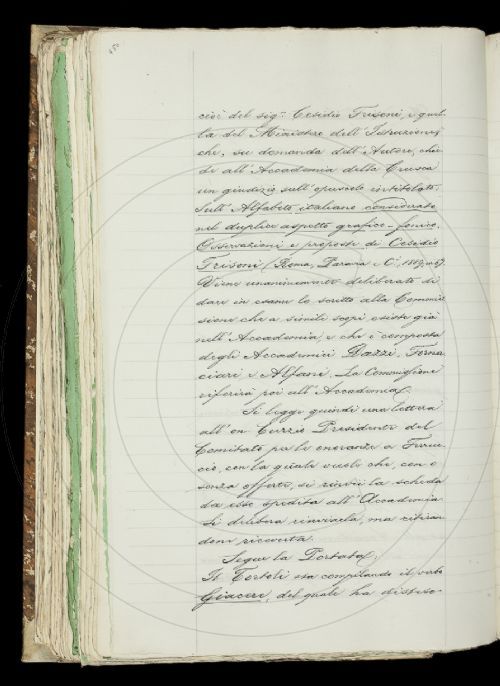 cioè del sig.r Cesidio Trisoni, e quel-
la del Ministero dell'Istruzione,
che, su domanda dell'Autore, chie-
de all'Accademia della Crusca
un giudizio sull'opuscolo intitolato:
Sull'Alfabeto italiano considerato
nel duplice aspetto grafico-fonico.
Osservazioni e proposte di Cesidio
Trisoni (Roma, Paravia e C.i
Viene unanimemente deliberato di
dare in esame lo scritto alla Commis-
sione che a simili scopi esiste già
nell'Accademia, e che è composta
degli Accademici Dazzi, Forna-
ciari e Alfani. La Commissione
riferirà poi all'Accademia.
Si legge quindi una lettera
all'on Curzio Presidente del
Comitato per le onoranze a Ferruc-
cio, con la quale vuole che, con o
senza offerte, si rinvii la scheda
da esso spedita all'Accademia.
Si delibera rinviarla, ma ritiran-
done ricevuta.
Segue la Tortata:
Il Tortoli sta compilando il verbo
Giacere, del quale ha disteso